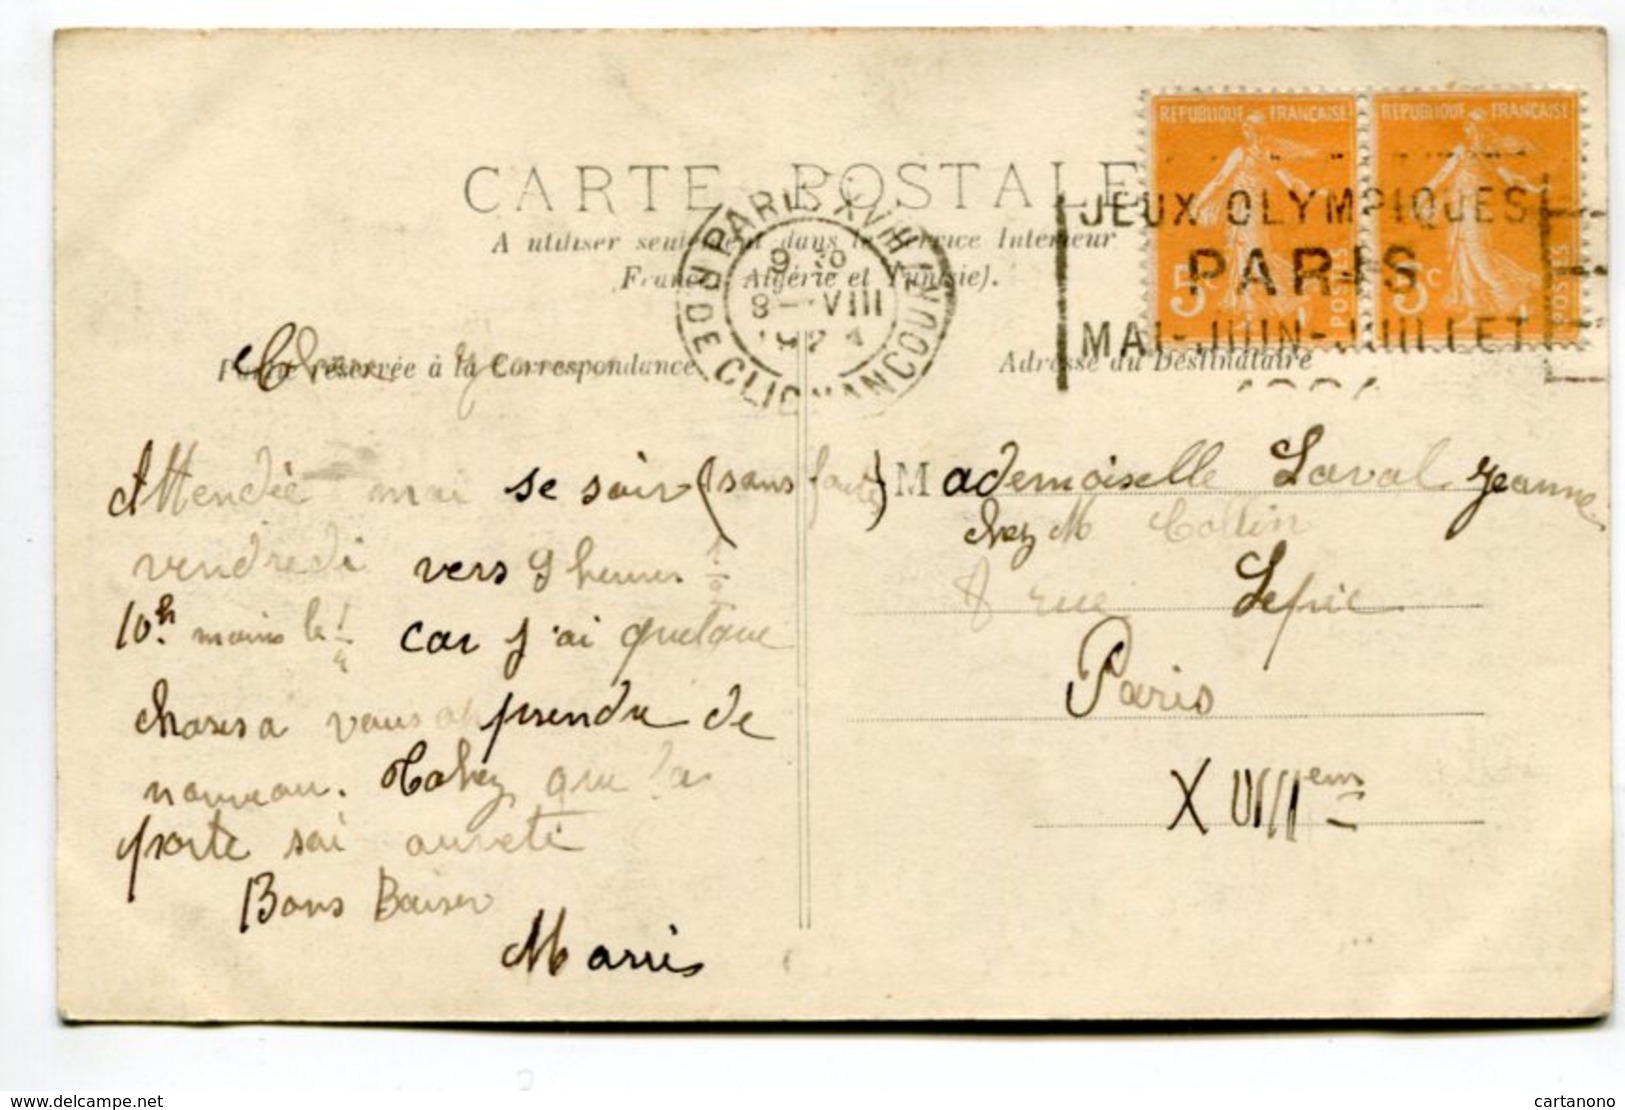 CARTE POSTALE
A utiliser seulement dans le Service Intérieur
France, Algérie et Tunisie).
Partie réservée à la Correspondance
Adresse du Destinataire
REPUBLIQUE FRANÇAISE
5c
POSTES
REPUBLIQUE FRANÇAISE
5c
POSTES
JEUX OLYMPIQUES
PARIS
MAI-JUIN-JUILLET
PARIS XVIII
R. DE CLIGNANCOURT
8 - VIII
Attendée moi se soir (sans faute)
vendredi vers 9 heures 1/2
10h moins le 1/4 car j'ai quelque
choses a vous prendre de
nouveau. Tachez que la
porte soi
Bons Baiser
Mademoiselle Laval Jeanne
chez M Collin
8 rue Lepic
Paris
XVIIIem
www.delcampe.net
cartanono